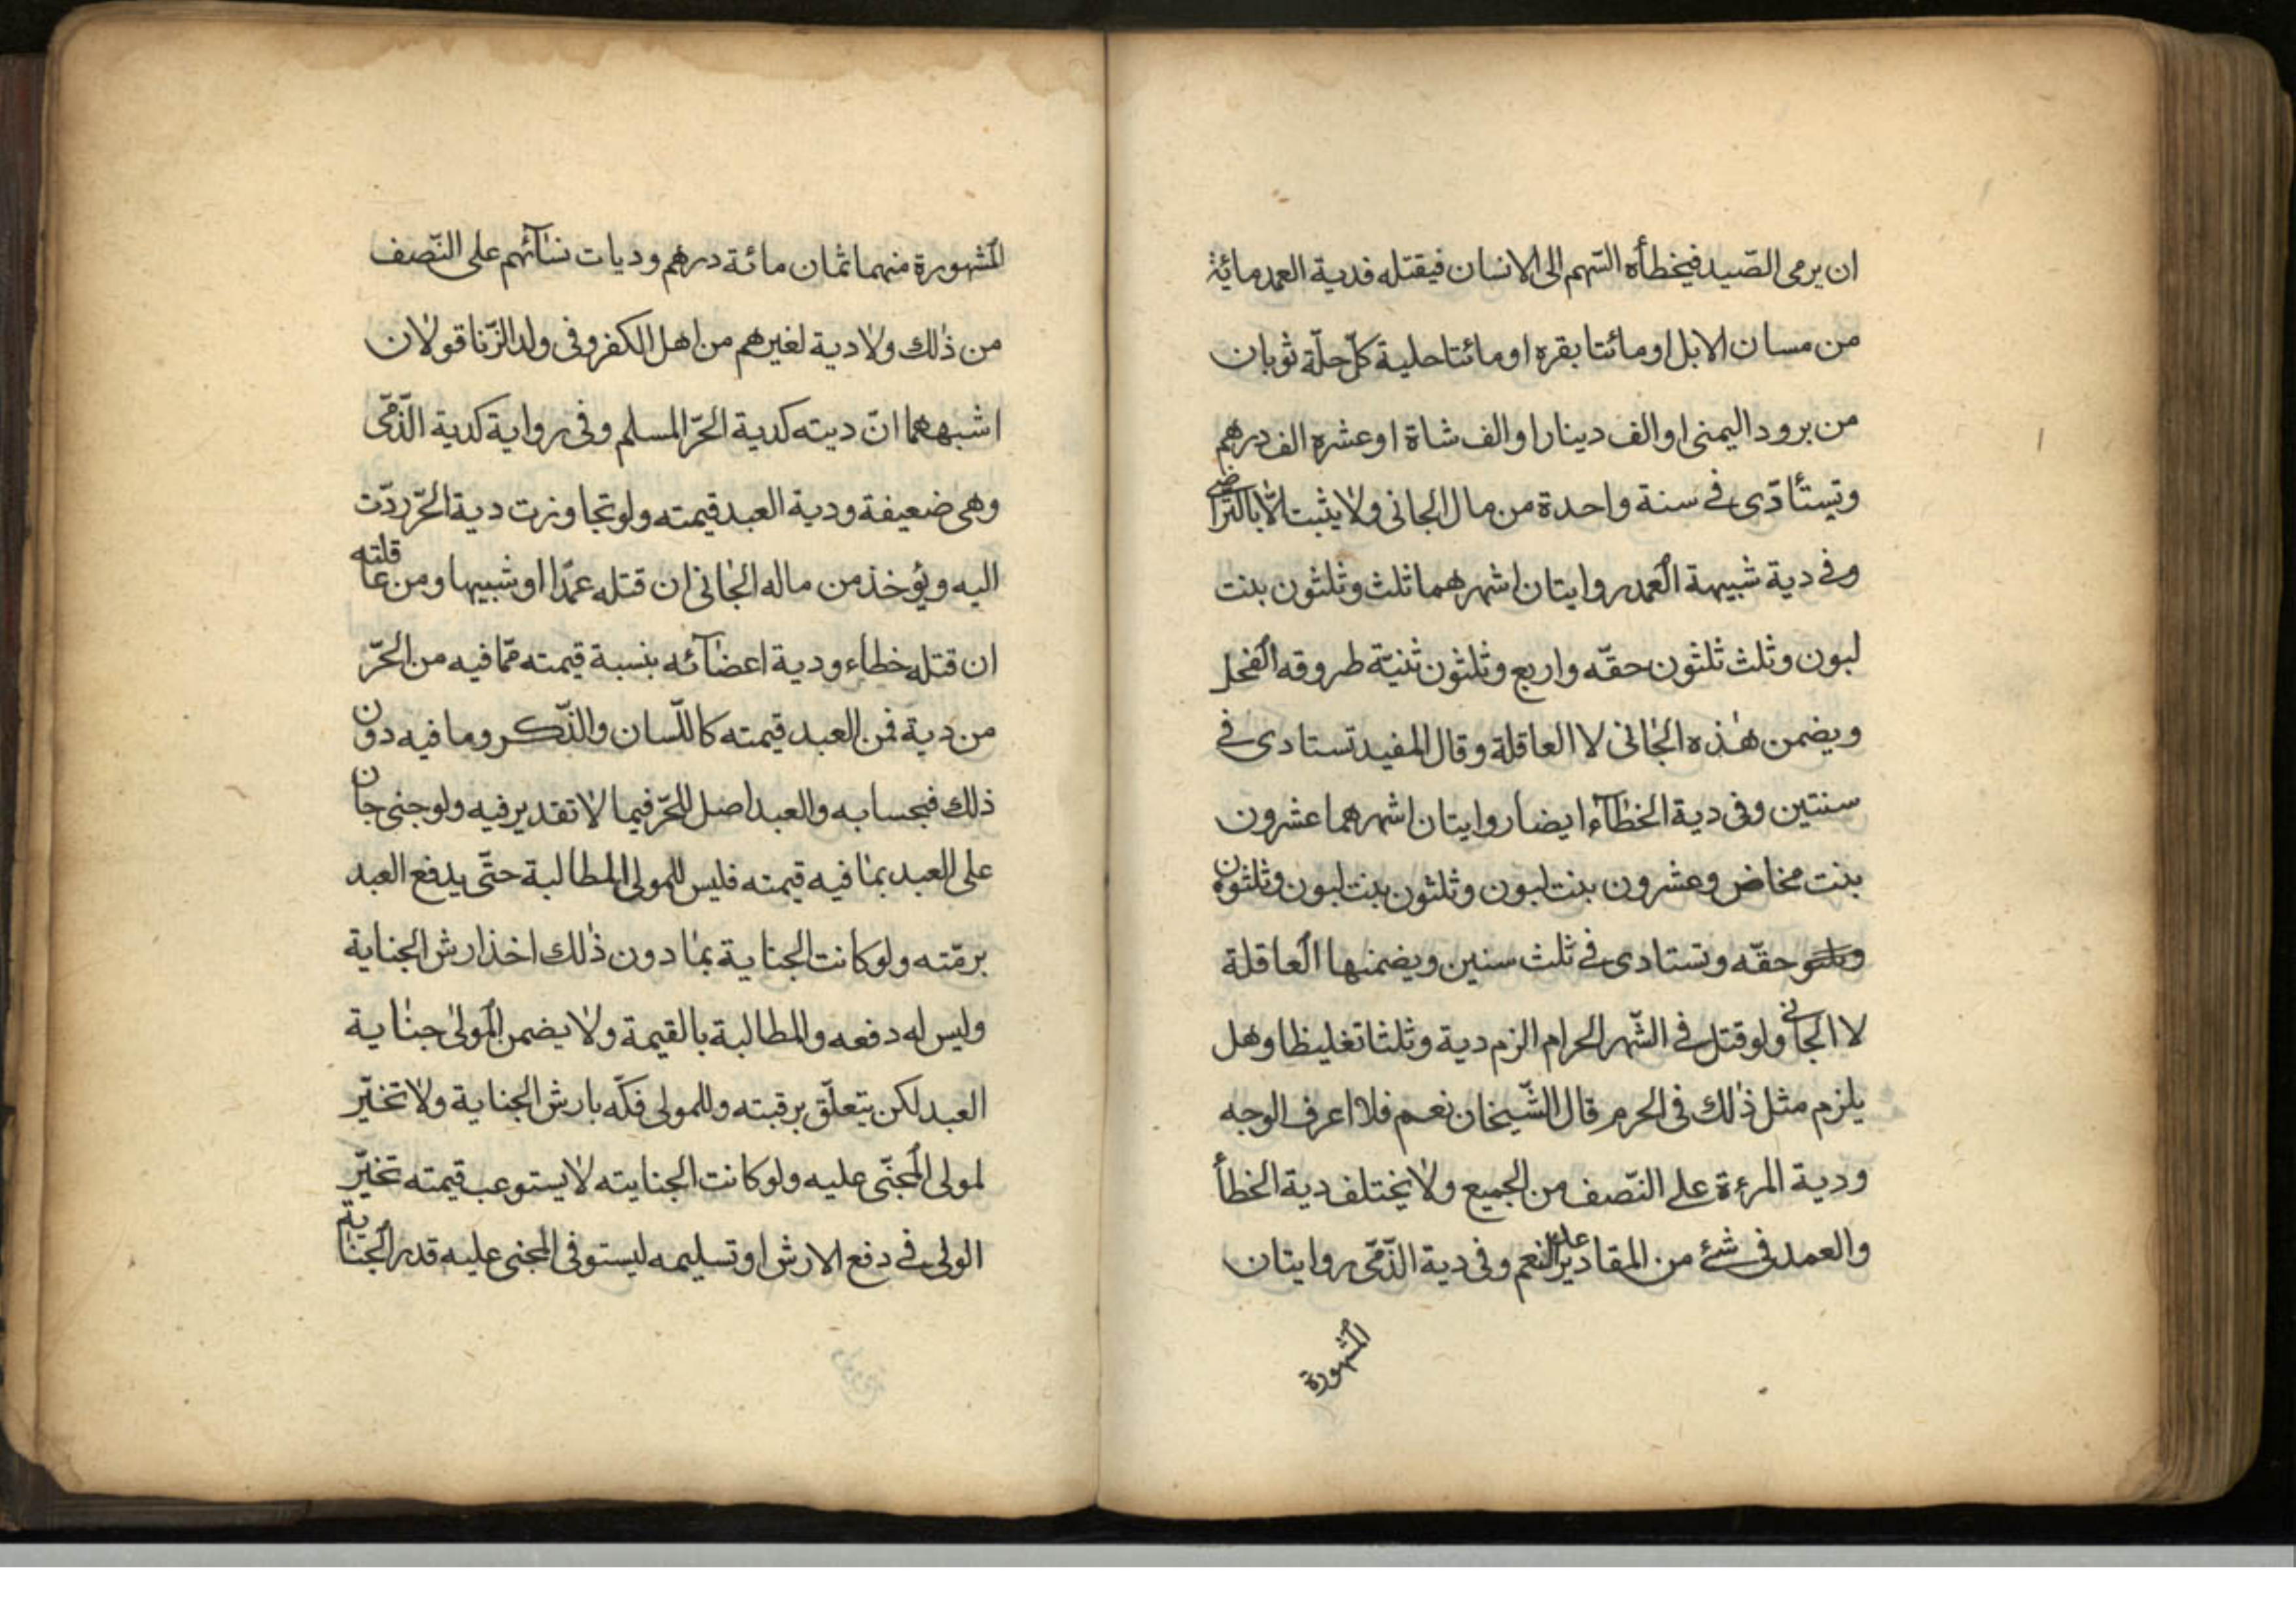 ان يرمى الصّيد فيخطأه السّهم الى الانسان فيقتله فدية العمد مائة
من مسان الابل او مائتا بقره او مائتا حلية كلّ حلّة ثوبان
من برود اليمنى او الف دينار او الف شاة او عشره الف درهم
وتيستأدّى فى سنة واحدة من مال الجانى ولا يثبت الّا بالتّراضى
وفى دية شبيهة العمد روايتان اشهرهما ثلث وثلثون بنت
لبون وثلث ثلثون حقّه واربع وثلثون ثنيّة طروقه الفحل
ويضمن هٰذه الجانى لا العاقلة وقال المفيد تستادى فى
سنتين وفى دية الخطآء ايضا روايتان اشهرهما عشرون
بنت مخاض وعشرون بنت لبون وثلثون بنت لبون وثلثون
وثلثو حقّه وتستادى فى ثلث سنين ويضمنها العاقلة
لا الجانى ولو قتل فى الشّهر الحرام الزم دية وثلثا تغليظا وهل
يلزم مثل ذٰلك فى الحرم قال الشّيخان نعم فلا اعرف الوجه
ودية المرءة على النّصف من الجميع ولا يختلف دية الخطأ
والعمد فى شئ من المقادير علير النعم وفى دية الذّمّى روايتان
المشهورة
المشهورة منهما ثمان مائة درهم وديات نسآئهم على النّصف
من ذٰلك ولا دية لغيرهم من اهل الكفر وفى ولد الزّنا قولان
اشبههما انّ ديته كدية الحرّ المسلم وفى رواية كدية الذّمّى
وهى ضعيفة ودية العبد قيمته ولو تجاوزت دية الحرّ ردّت
اليه ويؤخذ من ماله الجانى ان قتله عمدّا او شبيها ومن عاقلته
ان قتله خطاء ودية اعضآئه بنسبة قيمته ممّا فيه من الحرّ
من دية فمن العبد قيمته كاللّسان والذّكر وما فيه دون
ذلك فبحسابه والعبد اصل للحرّ فيما لا تقدير فيه ولو جنى جان
على العبد بما فيه قيمته فليس للمولى المطالبة حتّى يدفع العبد
برمّته ولو كانت الجناية بما دون ذٰلك اخذ ارش الجناية
وليس له دفعه والمطالبة بالقيمة ولا يضمن المولىٰ جناية
العبد لكن يتعلّق برقبته وللمولى فكّه بارش الجناية ولا تخيّر
لمولى المجنّى عليه ولو كانت الجنايته لا يستوعب قيمته تخيّر
الولى فى دفع الارش او تسليمه ليستوفى المجنى عليه قدر الجناية